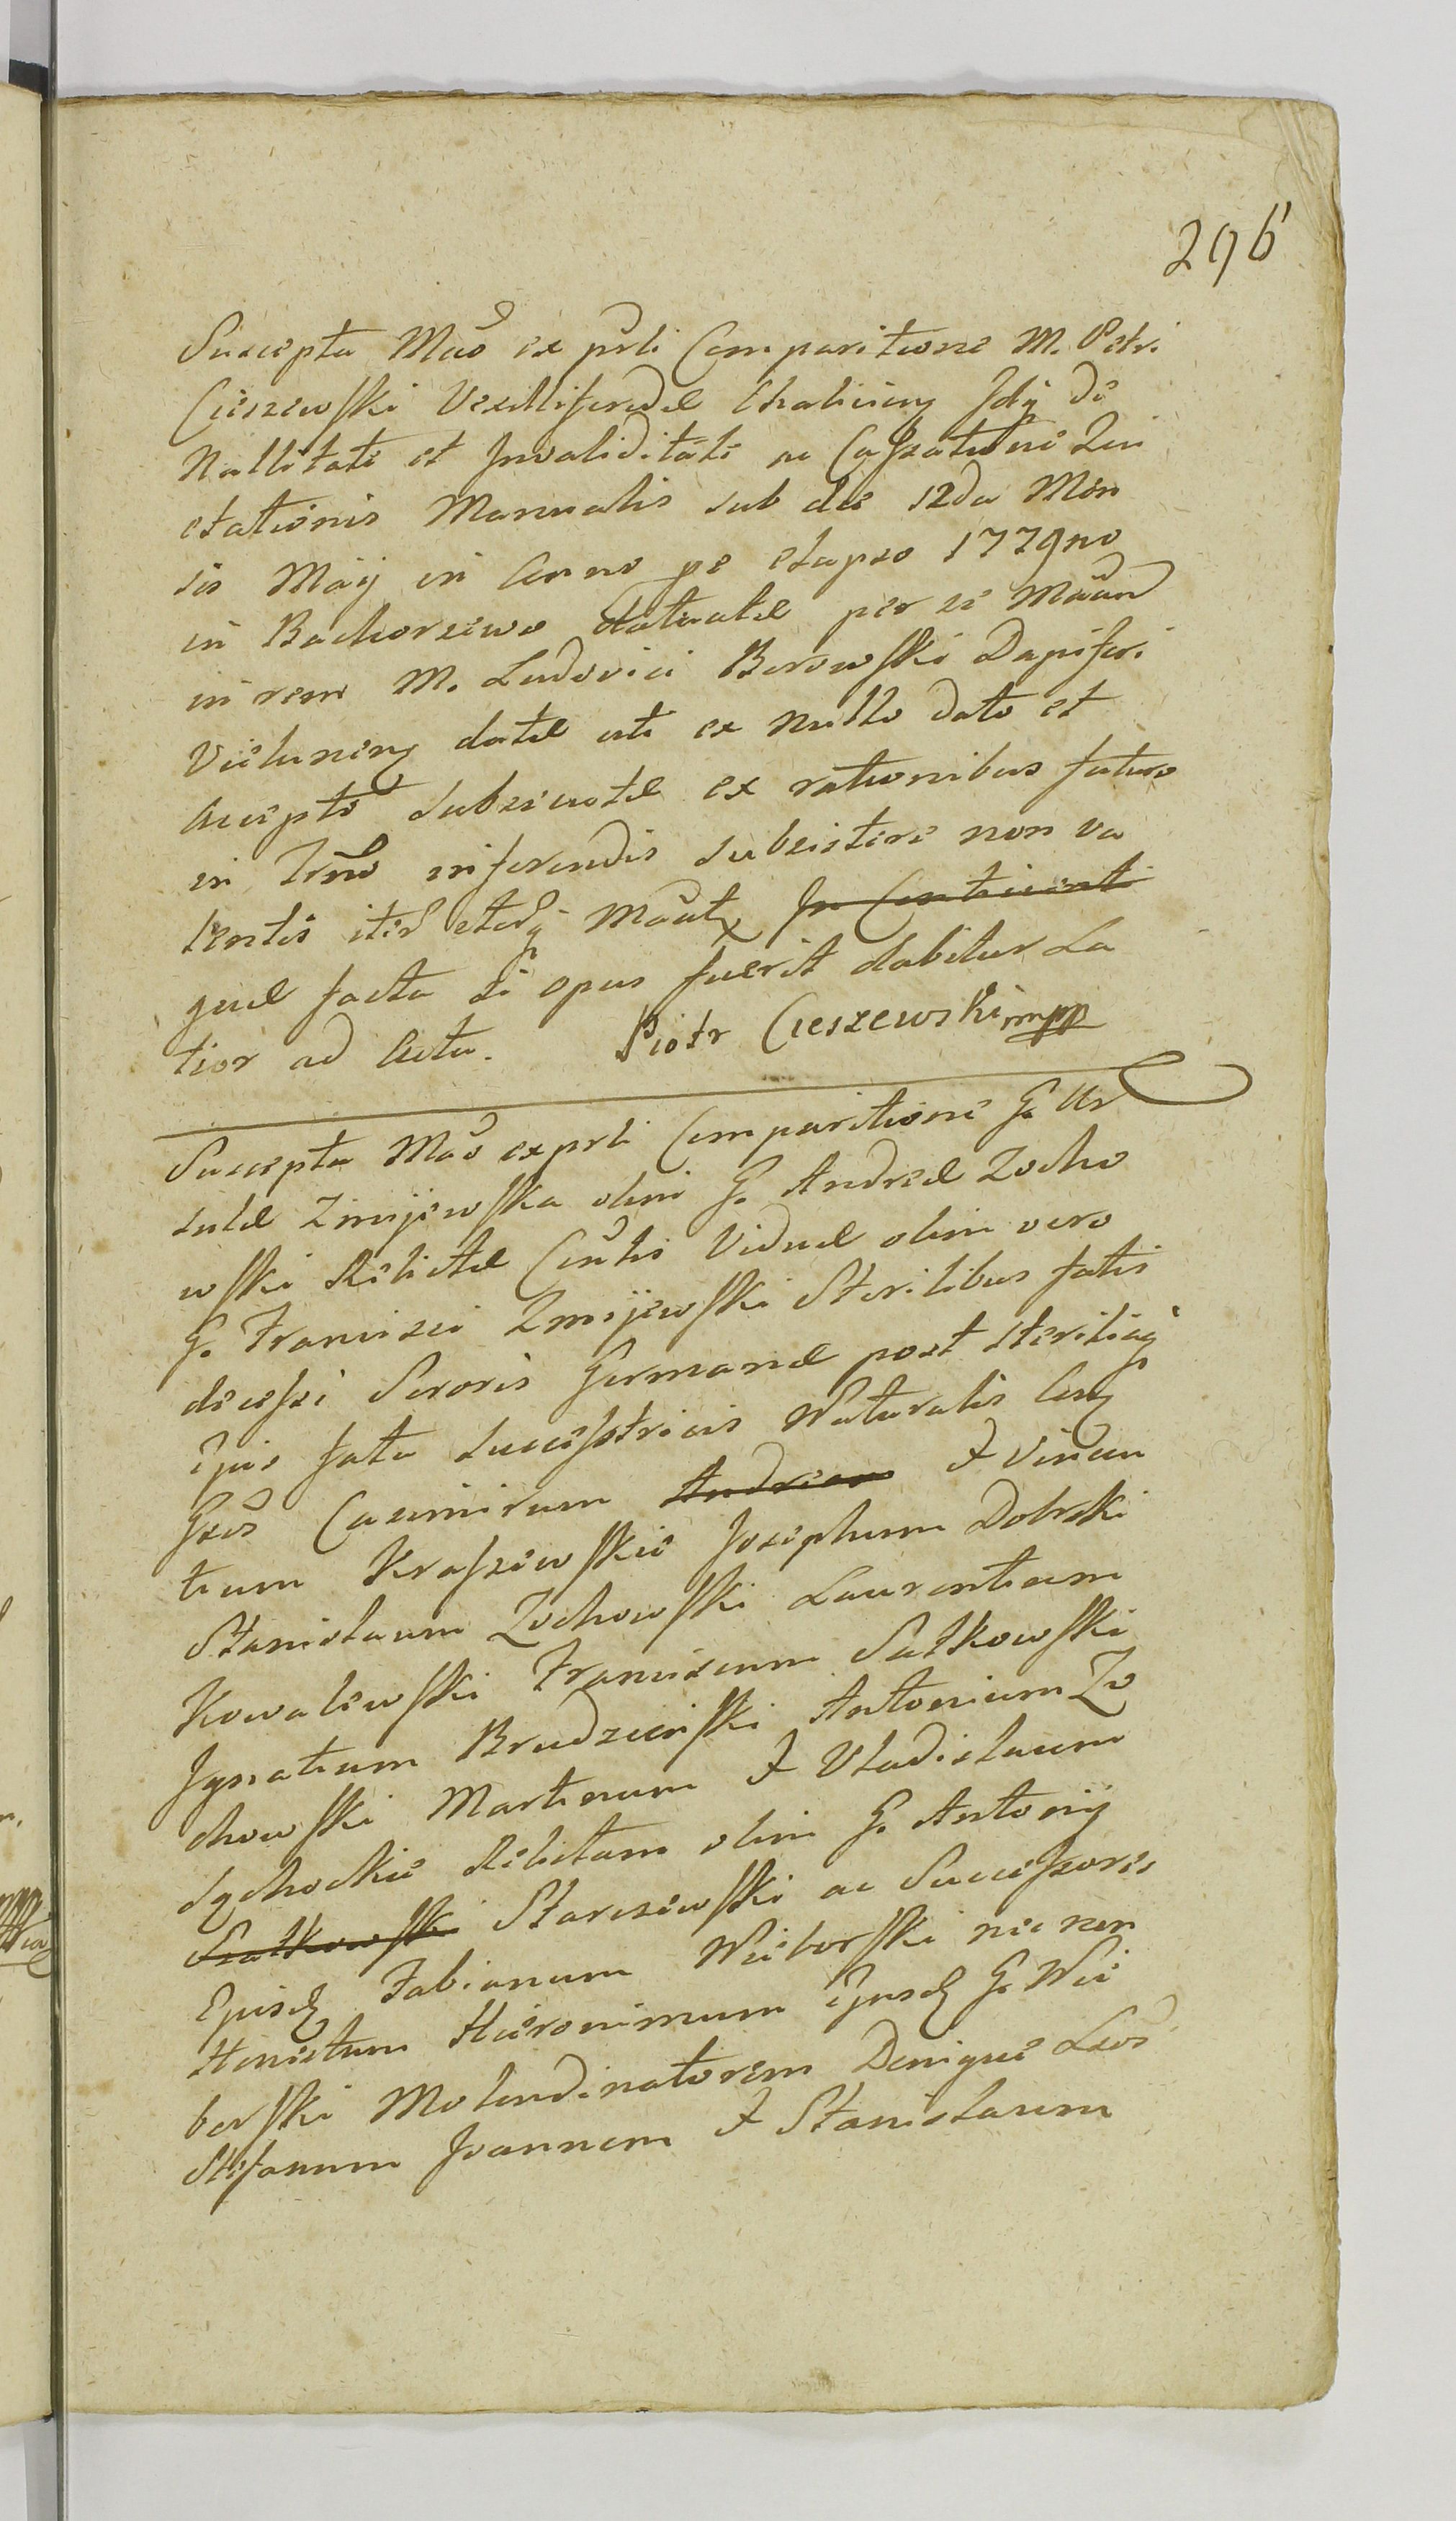 296
Suscepta Maõ ex prli Comparitione M. Petri
Cieszewski Vexilliferidae Ehalicieng Idq̃ de
Nullitate et Invaliditate ac Cassatione Qui
etationis Manualis sub die 12da Men
sis Maij in Anno pe elapso 1779no
in Bachorzewo datuatae per se Maan
in rem M. Ludovici Borowski Dapiferi
Vieluneng datae uti ex Nullo dato et
Accepto subsecutae ex rationibus futuro
in Trno inferendis subsistere non va
lentis
quae facta si opus fuerit dabitur La
tior ad Acta. Piotr Cieszewski mpp
Suscepta Maõ ex prli Comparitione G. Ur
sulae Zmijewska olim G. Andreae Zocho
wski Relictae Consortis Viduae olim vero
G. Francisci Zmijewski Sterilibus fatis
decessi Sororis Germanae post steriliaq̃
Ejus fata Successtricis Naturalis Cong
Gsos Casimirum Andream & Vincen
tium Krassewskie Josephum Dobrski
Stanislaum Zochowski Laurentium
Kowalewski Franciscum Salkowski
Ignatium Brudzinski Antonium Zo
chowski Martinum & Vladislaum
Sychockie Relictam olim G. Antonij
Szalkowski Starczewski ac Successores
Ejusd Fabianum Wieborski nec non
Honestum Hieronimum Ejusd G. Wie
borski Molendinatorem Denique Lsos
Stefanum Joannem & Stanislaum